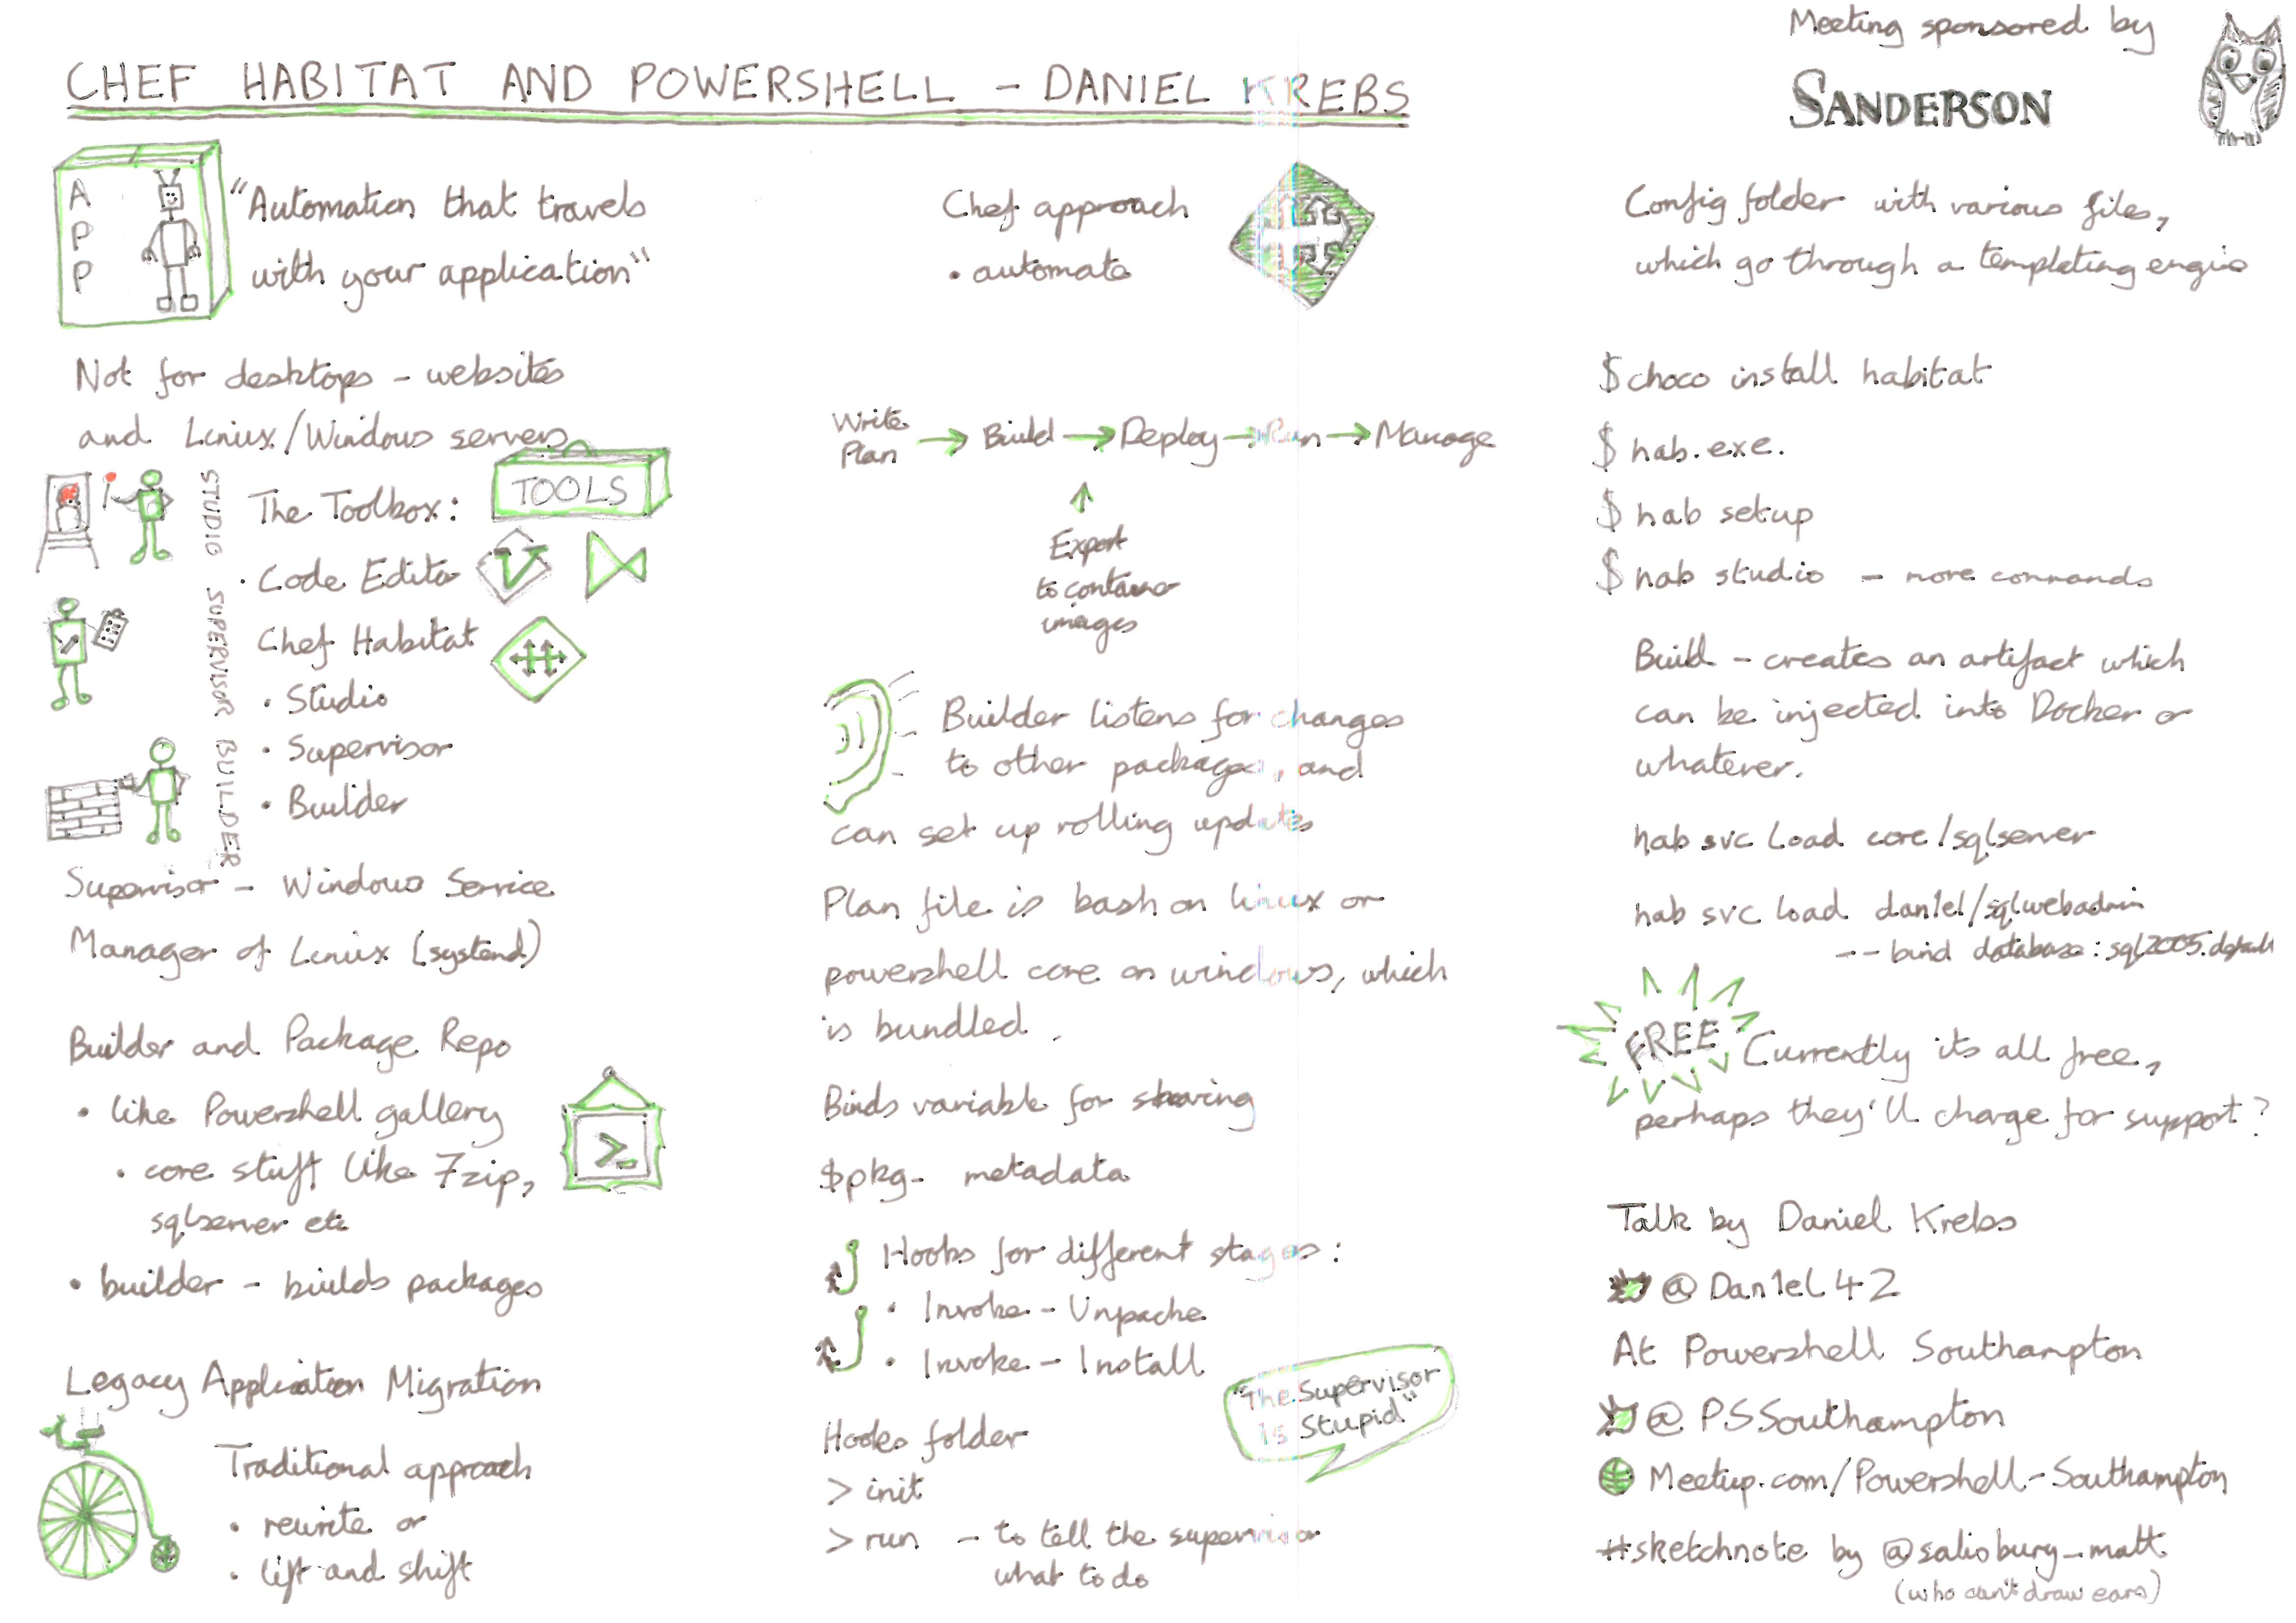 CHEF HABITAT AND POWERSHELL - DANIEL KREBS
Meeting sponsored by
SANDERSON
APP
"Automation that travels
with your application"
Not for desktops - websites
and Linux/Windows servers
STUDIO SUPERVISOR BUILDER
The Toolbox:
TOOLS
• Code Editor
Chef Habitat
• Studio
• Supervisor
• Builder
Supervisor - Windows Service
Manager of Linux (systemd)
Builder and Package Repo
• like Powershell gallery
• core stuff like 7zip,
sqlserver etc
>_
• builder - builds packages
Legacy Application Migration
Traditional approach
• rewrite or
• lift and shift
Chef approach
• automate
Write
Plan → Build → Deploy → Run → Manage
Export
to container
images
Builder listens for changes
to other packages, and
can set up rolling updates
Plan file is bash on linux or
powershell core on windows, which
is bundled.
Binds variable for sharing
$pkg- metadata
Hooks for different stages:
• Invoke - Unpacke
• Invoke - Install
"The Supervisor
Is Stupid"
Hooks folder
> init
> run - to tell the supervisor
what to do
Config folder with various files,
which go through a templating engine
$ choco install habitat
$ hab.exe.
$ hab setup
$ hab studio - more commands
Build - creates an artifact which
can be injected into Docker or
whatever.
hab svc load core/sqlserver
hab svc load dan1el/sqlwebadmin
--bind database:sql2005.default
FREE
Currently its all free,
perhaps they'll charge for support?
Talk by Daniel Krebs
@Dan1el42
At Powershell Southampton
@PSSouthampton
Meetup.com/Powershell-Southampton
#sketchnote by @salisbury_matt
(who can't draw ears)